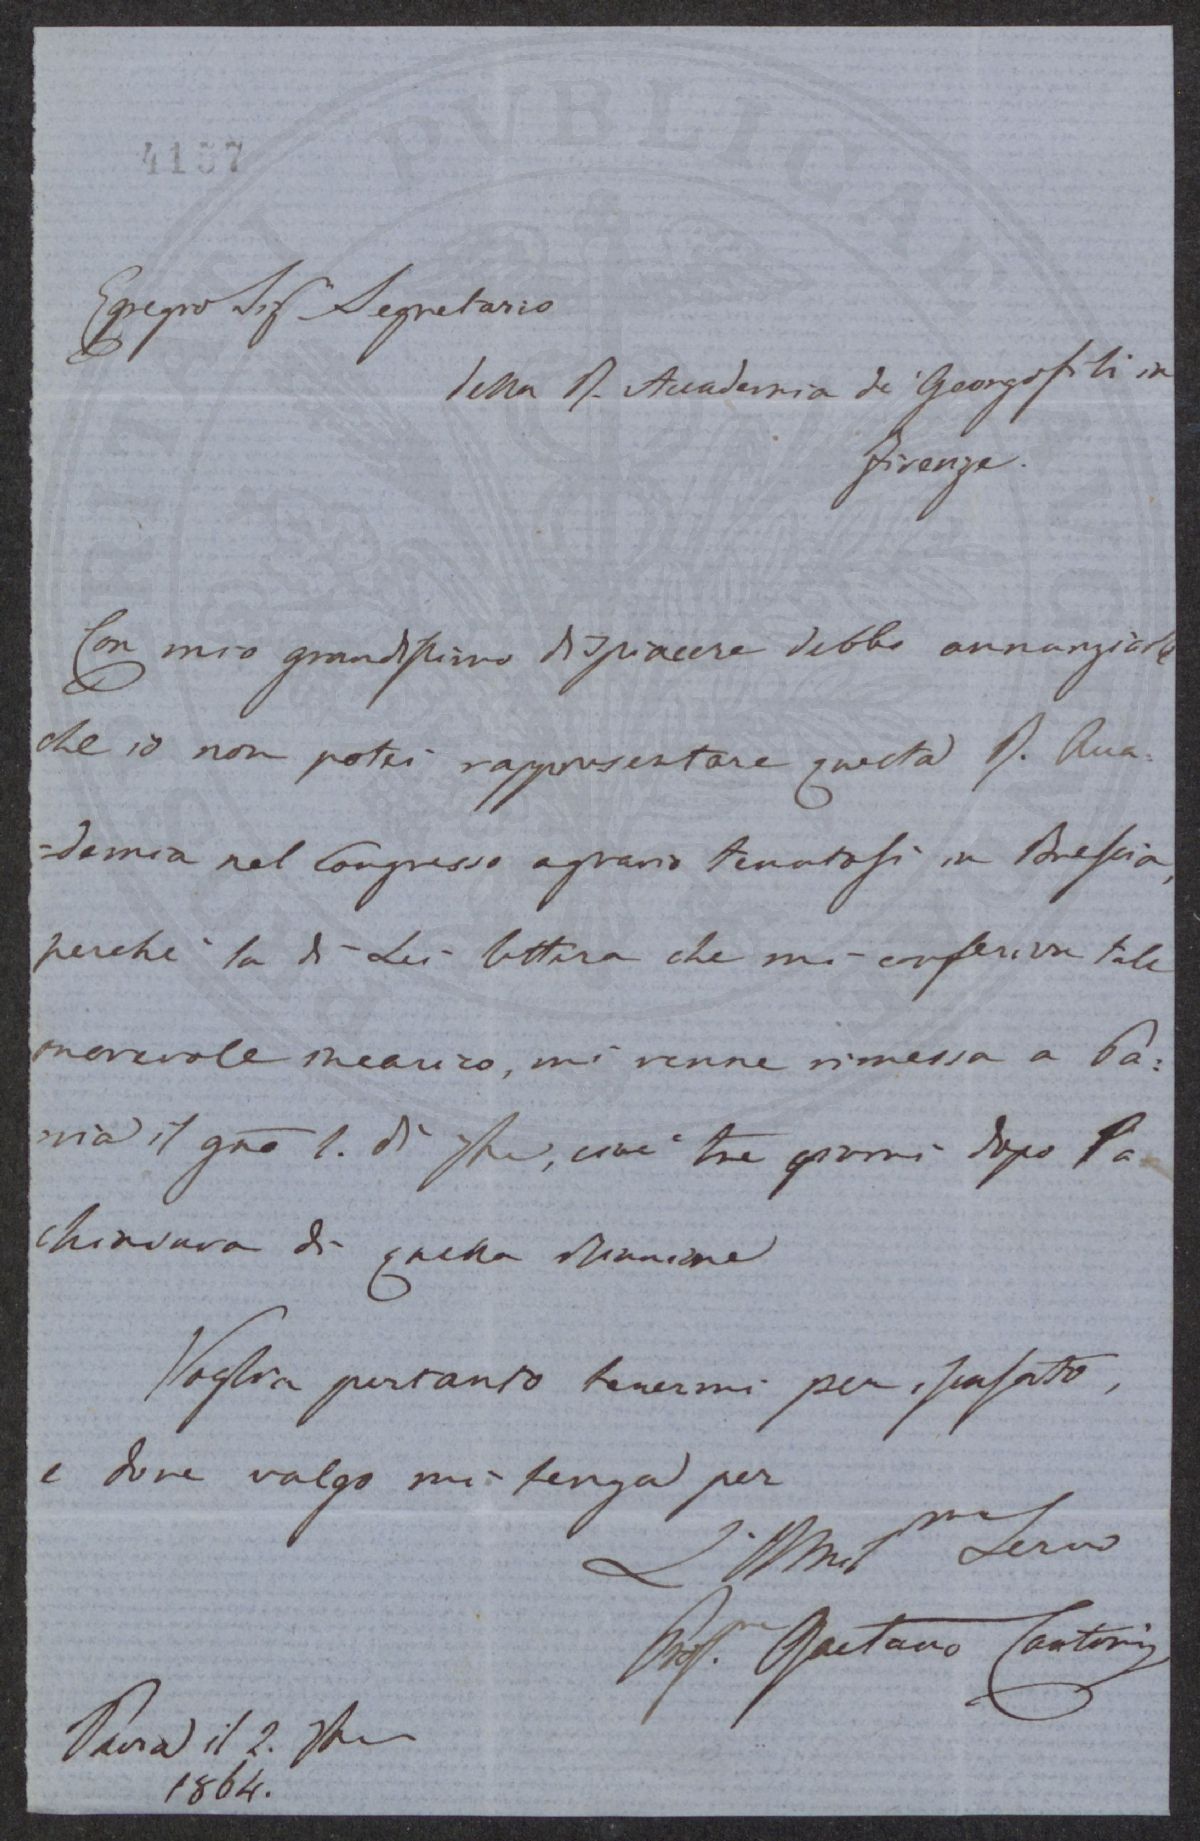 4157
Egregio Sigr Segretario
della R. Accademia de' Georgofili in
Firenze.
Con mio grandissimo dispiacere debbo annunziarle
che io non potei rappresentare questa R. Acca=
=demia nel Congresso agrario tenutosi in Brescia,
perchè la di Lei lettera che mi conferiva tale
onorevole incarico, mi venne rimessa a Pa=
via il gno 1. di 7bre, cioè tre giorni dopo la
chiusura di quella riunione
Voglia pertanto tenermi per iscusato,
e dove valgo mi tenga per
L'Umilmo Servo
Prof. Gaetano Cantoni
Pavia il 2. 7bre
1864.